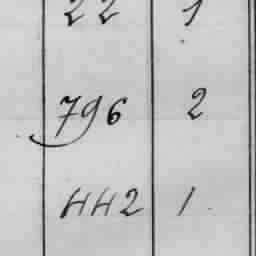 22 1
796 2
HH2 1